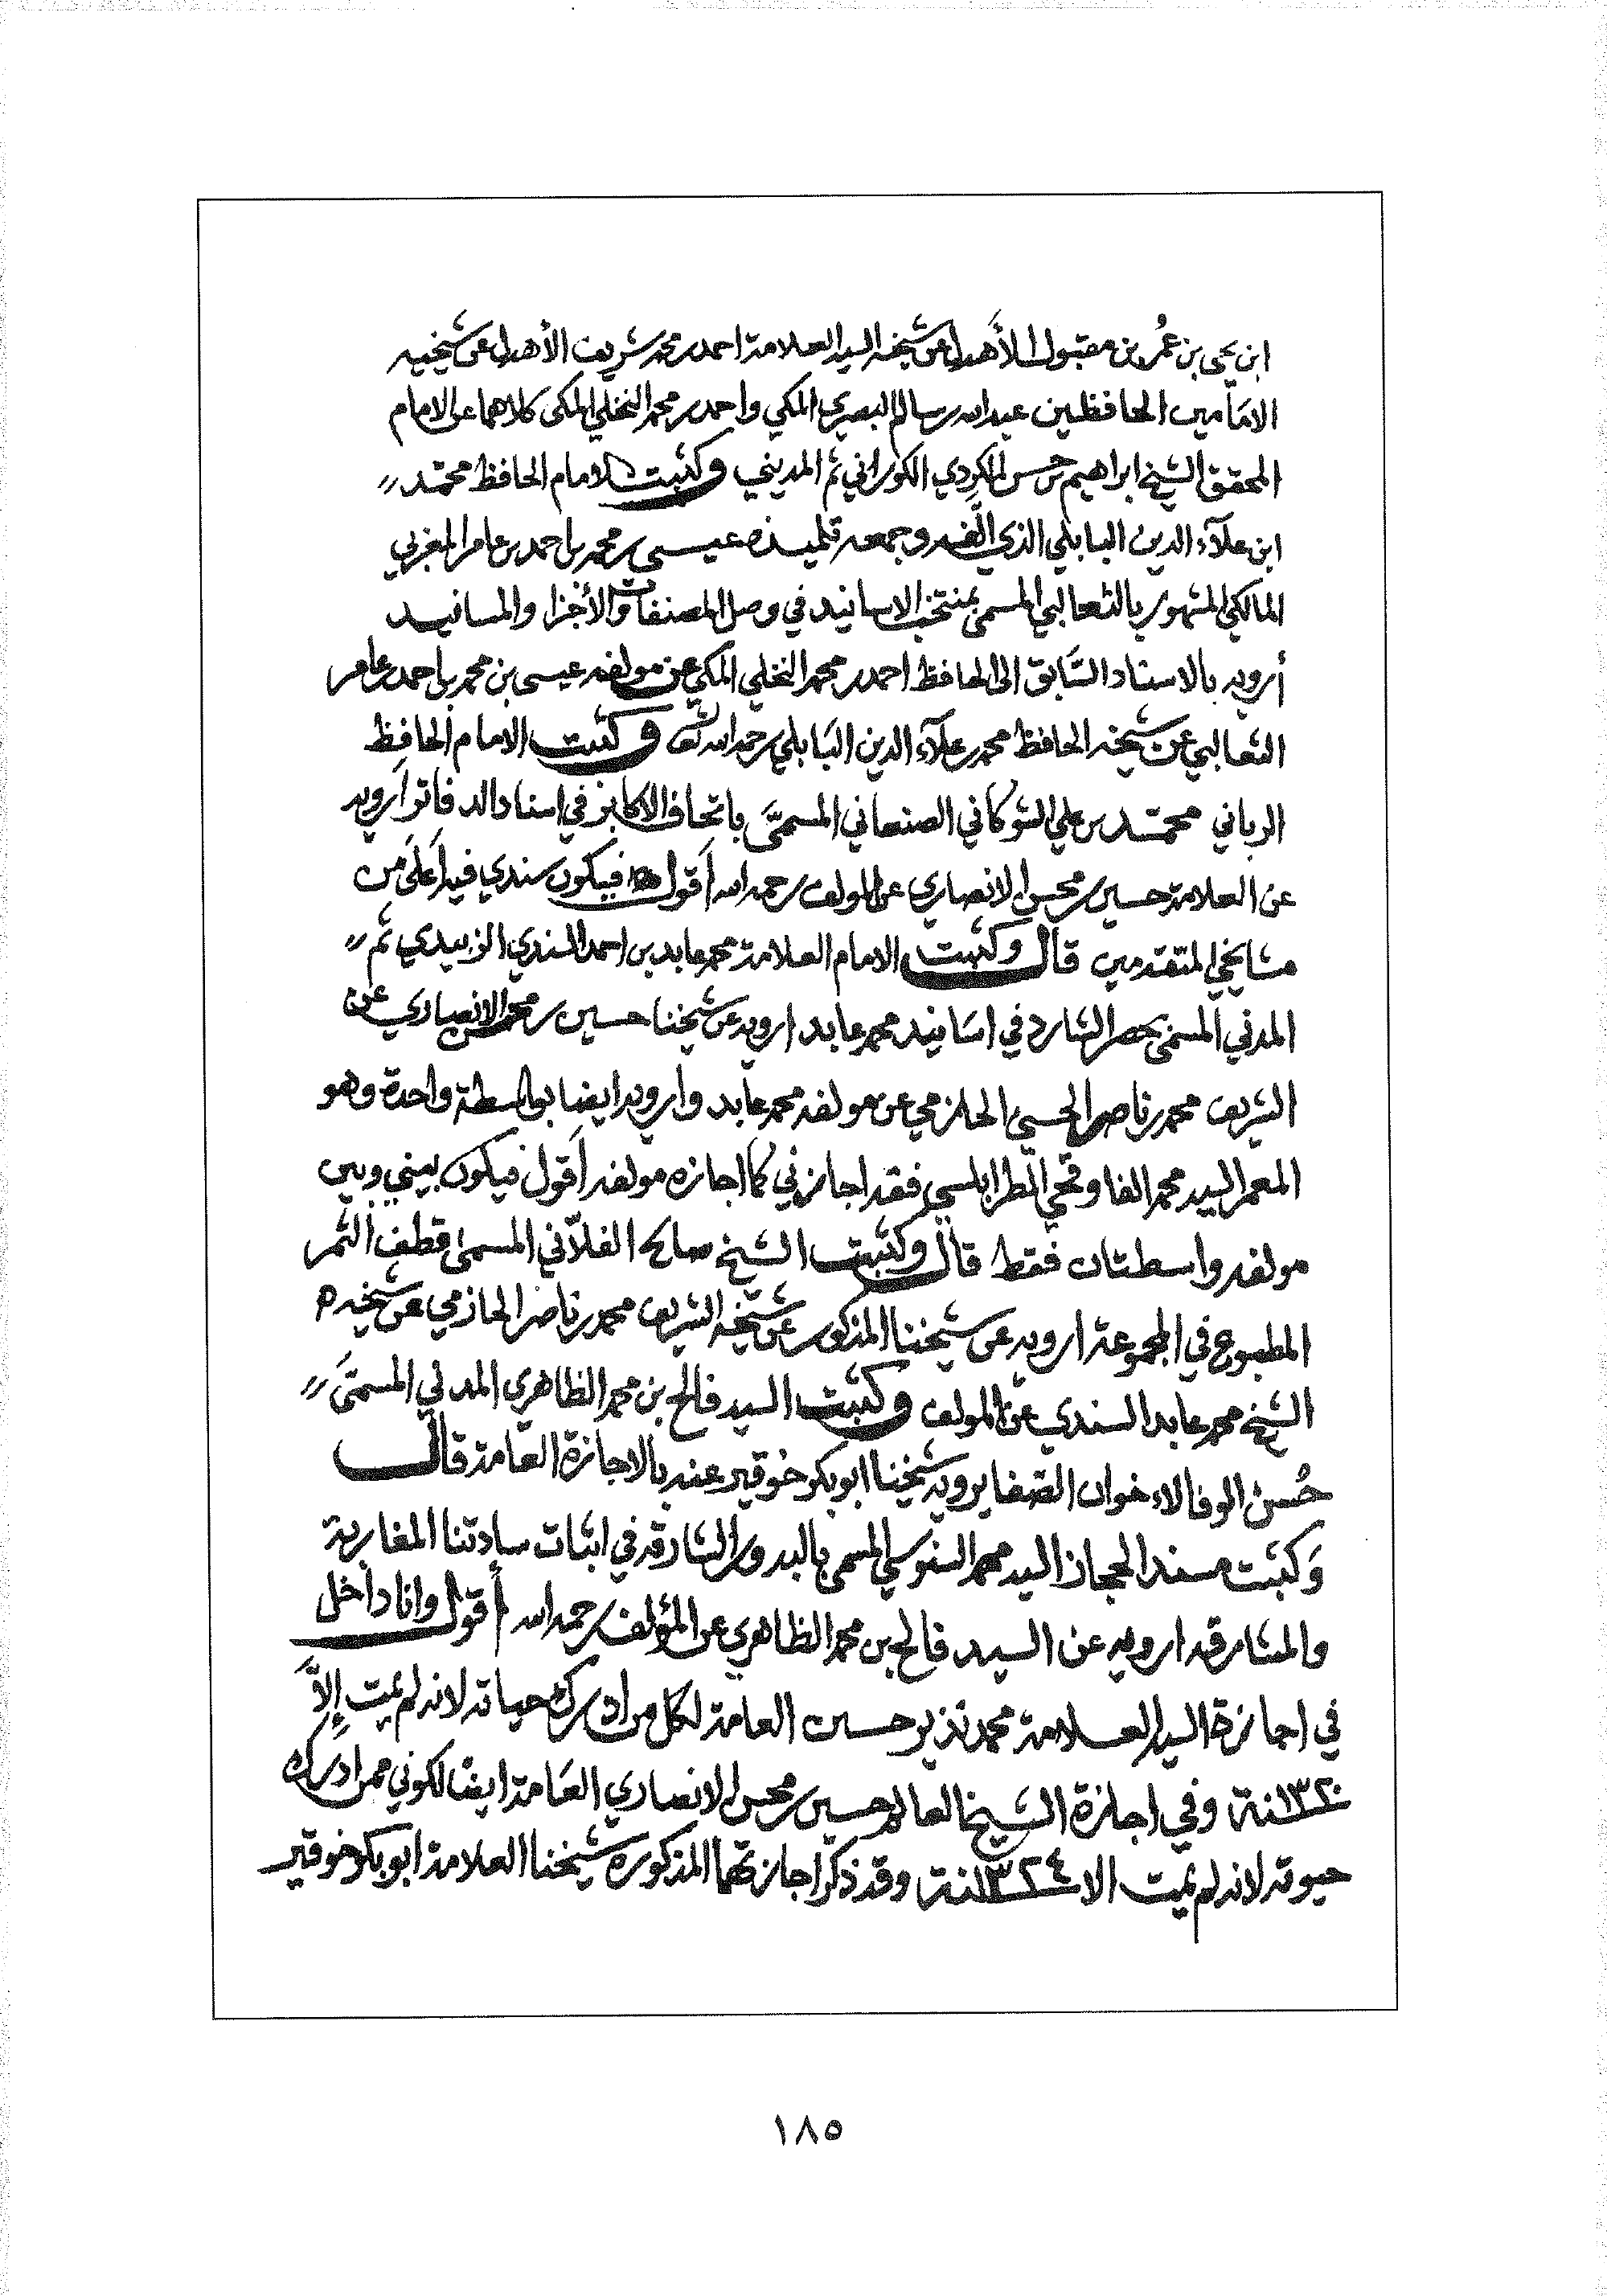 ابن يحيى بن عُمر بن مقبول الأَهدل عن شيخه السيد العلامة احمد بن محمد شريف الأهدل عن شيخيه
الامَامين الحافظين عبد الله بن سالم البصري المكي واحمد بن محمد النخلي المكى كلاهما عن الامام
المحقق الشيخ ابراهيم بن حسن الكردي الكوراني ثم المديني وكثبت الامام الحافظ محمّد
ابن علآء الدين البابلي الذي الّفه وجمعه تلميذه عيسى بن محمد بن احمد بن عامر المغربي
المالكي المشهور بالثعالبي المسمى بمنتخب الاسانيد في وصل المصنفات والأجزا والمسانيد
أرويه بالاسناد السَّابق الى الحافظ احمد بن محمد النخلي المكي عن مولفه عيسى بن محمد بن احمد بن عامر
الثعالبي عن شيخه الحافظ محمد بن علآء الدين البَابلي رحمه الله تعا وكثبت الامام الحافظ
الرباني محمّد بن علي الشوكاني الصنعاني المسمَّى باتحاف الاكابر في اسناد الدفاتر اَرويه
عن العلامة حسين بن محسن الانصاري عن المولف رحمه الله اَقول فيكون سندي فيه اَعلَى من
مشايخي المتقدمين قال وكثبت الامام العلامة محمد عابد بن احمد السندي الزبيدي ثم
المدني المسمى بحصر الشارد في اسَانيد محمد عابد ارويه عن شيخنا حسين بن محسن الانصاري عن
الشريف محمد بن ناصر الحسني الحازمي عن مولفه محمد عابد وارويه ايضا بواسطة واحدة وهو
المعمر السيد محمد القاوقجي الطرابلسي فقد اجازني كما اجازه مولفه اَقول فيكون بيني وبين
مولفه واسطتان فقط قال وكثبت الشيخ صالح الفلاّني المسمى قطف الثمر
المطبوع في المجموعة ارويه عن شيخنا المذكور عن شيخه الشريف محمد بن ناصر الحازمي عن شيخه
الشيخ محمد عابد السندي عن المولف وكثبت السيد فالح بن محمد الظاهري المدني المسمَّى
حُسن الوفا لاخوان الصّفا يرويه شيخنا ابو بكر خوقير عنه بالاجازة العَامة قال
وَكثبت مسند الحجاز السيد محمد السنوسي المسمى بالبدور الشارقه في اثبات سادتنا المغاربة
والمشارقه ارويه عن السيد فالح بن محمد الظاهري عن المؤلف رحمه الله أقول وانا داخل
في اجازة السيد العلامة محمد نذير حسين العامة لكل من ادرك حياته لانه لم يمت إِلاَّ
١٣٢٠سنة وفي اجازة الشيخ العالم حسين بن محسن الانصاري العَامة ايضًا لكوني ممن ادرك
حيوته لانه لم يمت الا ١٣٢٤سنة وقد ذكر اجازتهما المذكوره شيخنا العلامة ابو بكر خوقير
١٨٥